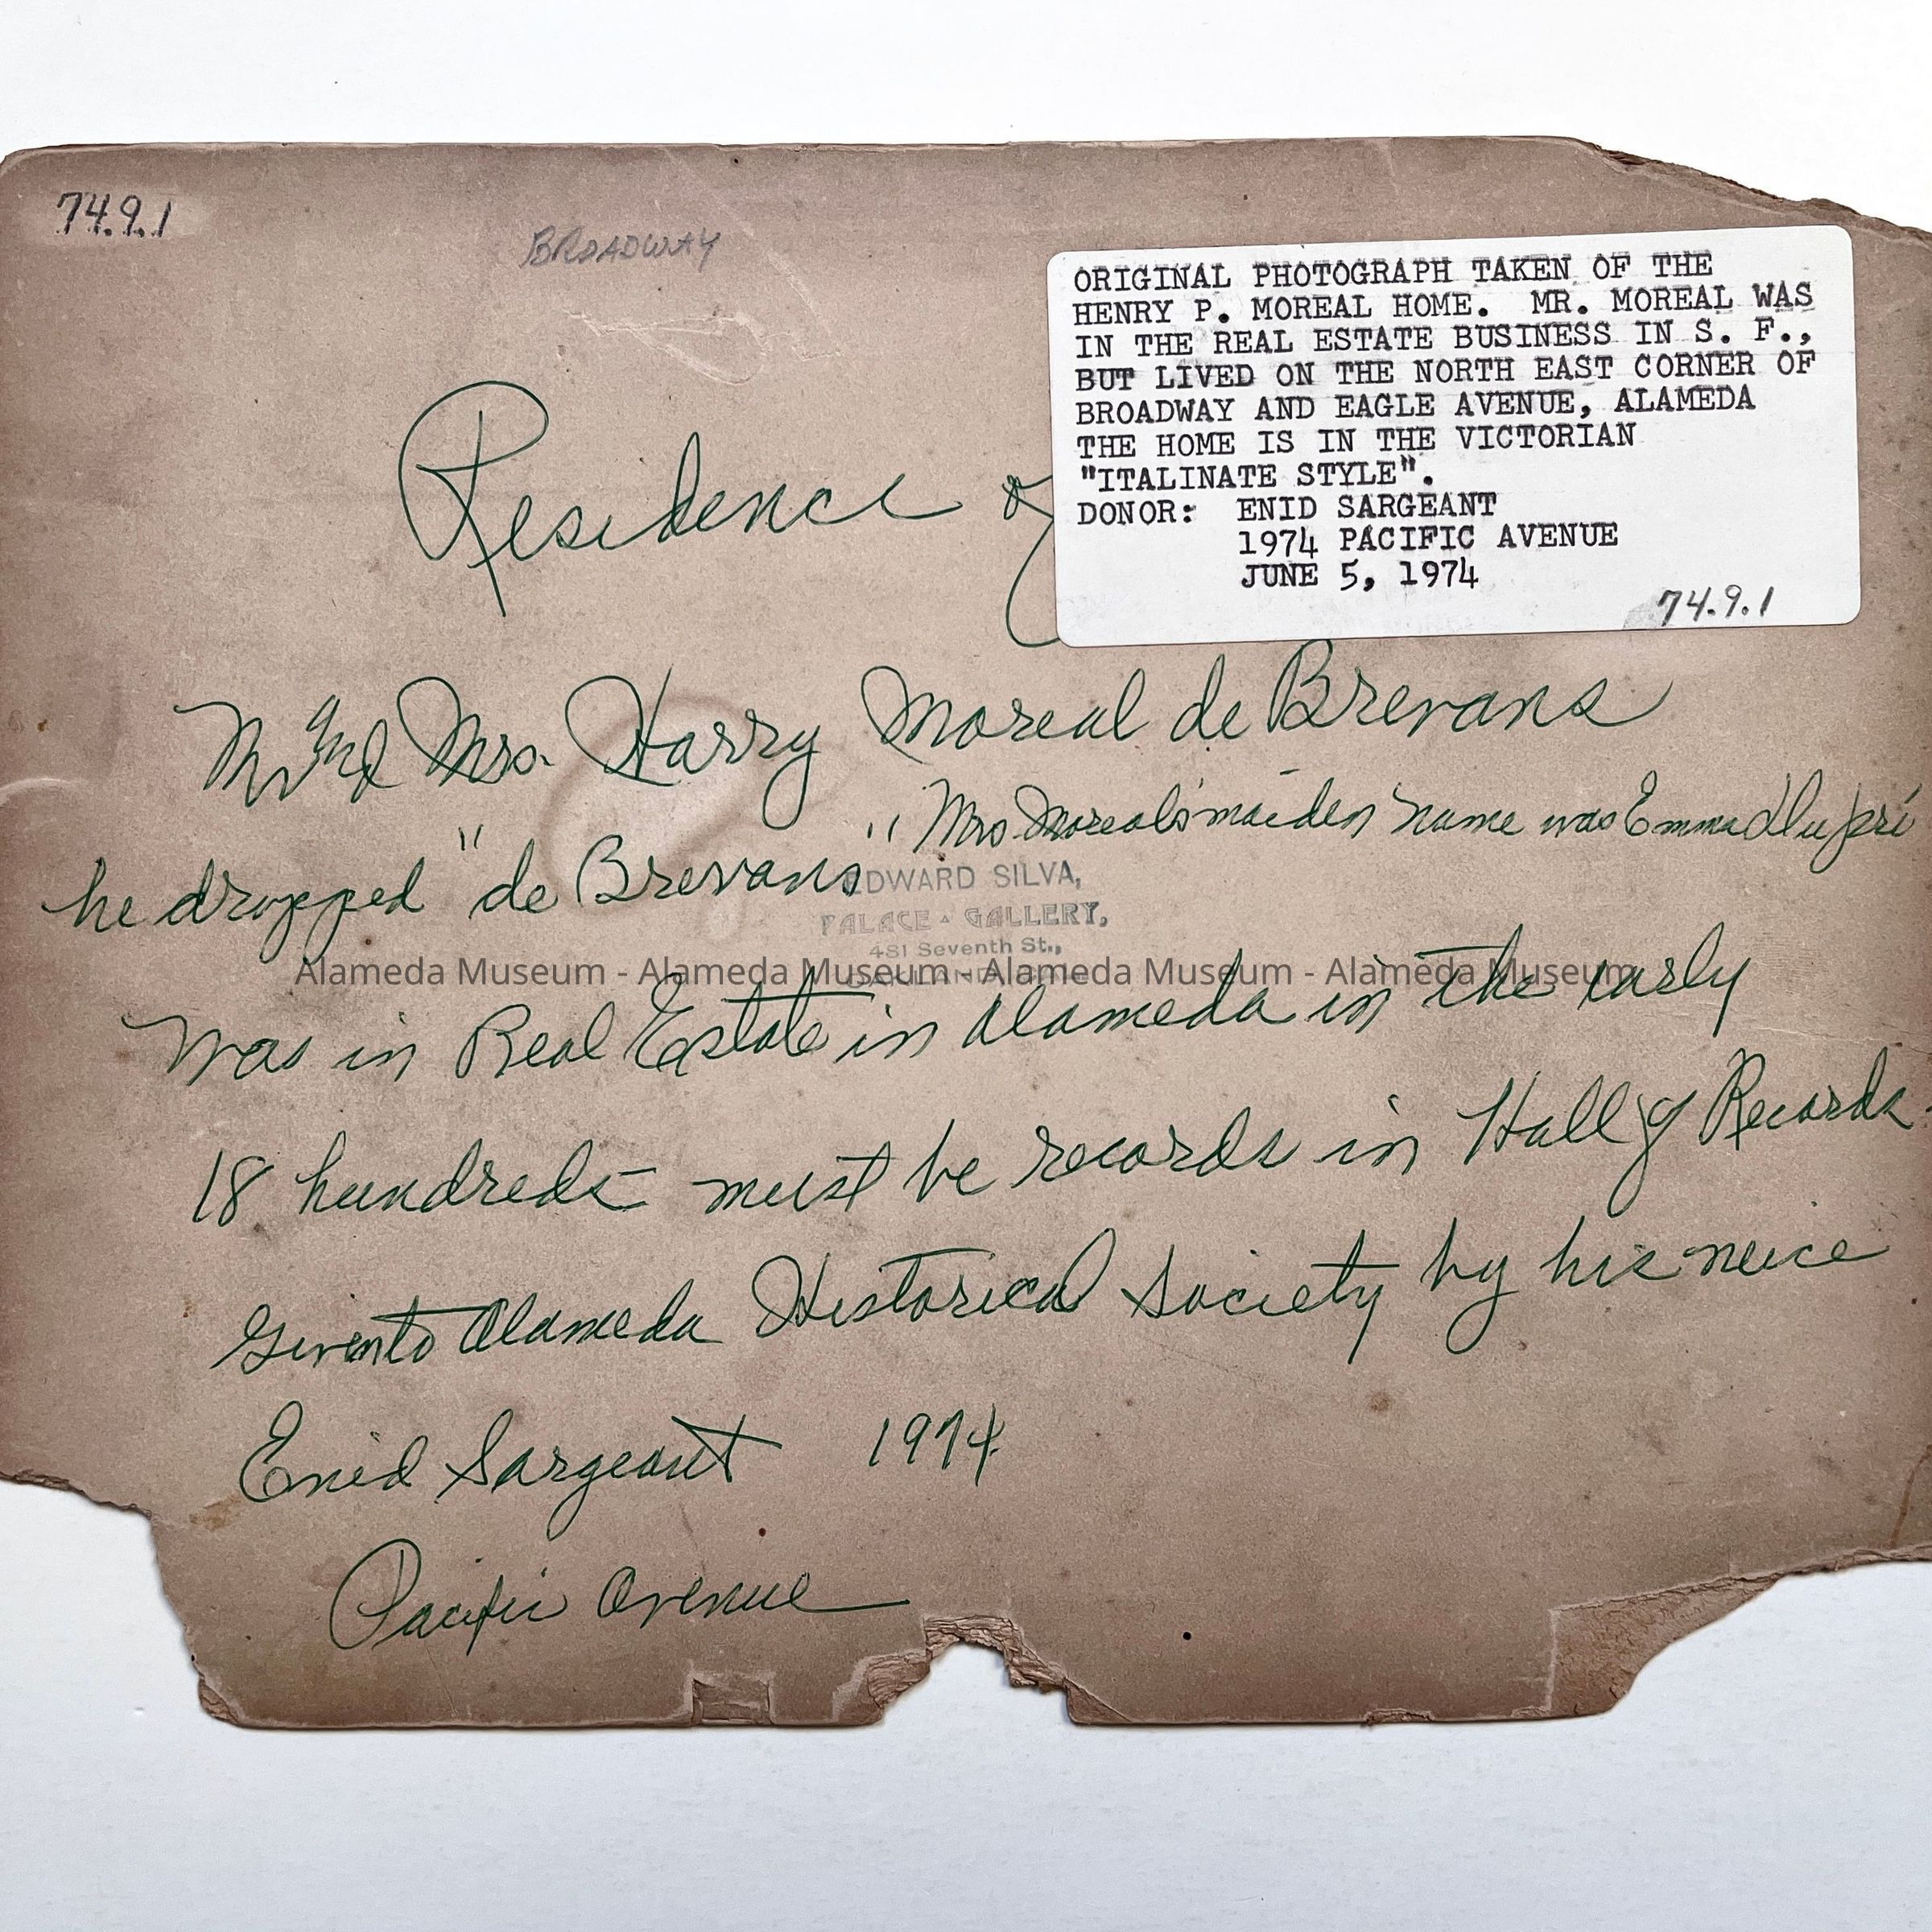 74.9.1
BROADWAY
ORIGINAL PHOTOGRAPH TAKEN OF THE
HENRY P. MOREAL HOME. MR. MOREAL WAS
IN THE REAL ESTATE BUSINESS IN S. F.,
BUT LIVED ON THE NORTH EAST CORNER OF
BROADWAY AND EAGLE AVENUE, ALAMEDA
THE HOME IS IN THE VICTORIAN
"ITALINATE STYLE".
DONOR: ENID SARGEANT
1974 PACIFIC AVENUE
JUNE 5, 1974
74.9.1
Residence of
Mr and Mrs. Harry Moreal de Brevans
Mrs Moreal's maiden name was Emma
he dropped "de Brevans"
EDWARD SILVA,
PALACE GALLERY,
481 Seventh St.,
OAKLAND
Alameda Museum - Alameda Museum - Alameda Museum - Alameda Museum
was in Real Estate in Alameda in the early
18 hundreds - must be records in Hall of Records
given to Alameda Historical Society by his neice
Enid Sargeant 1974
Pacific Avenue